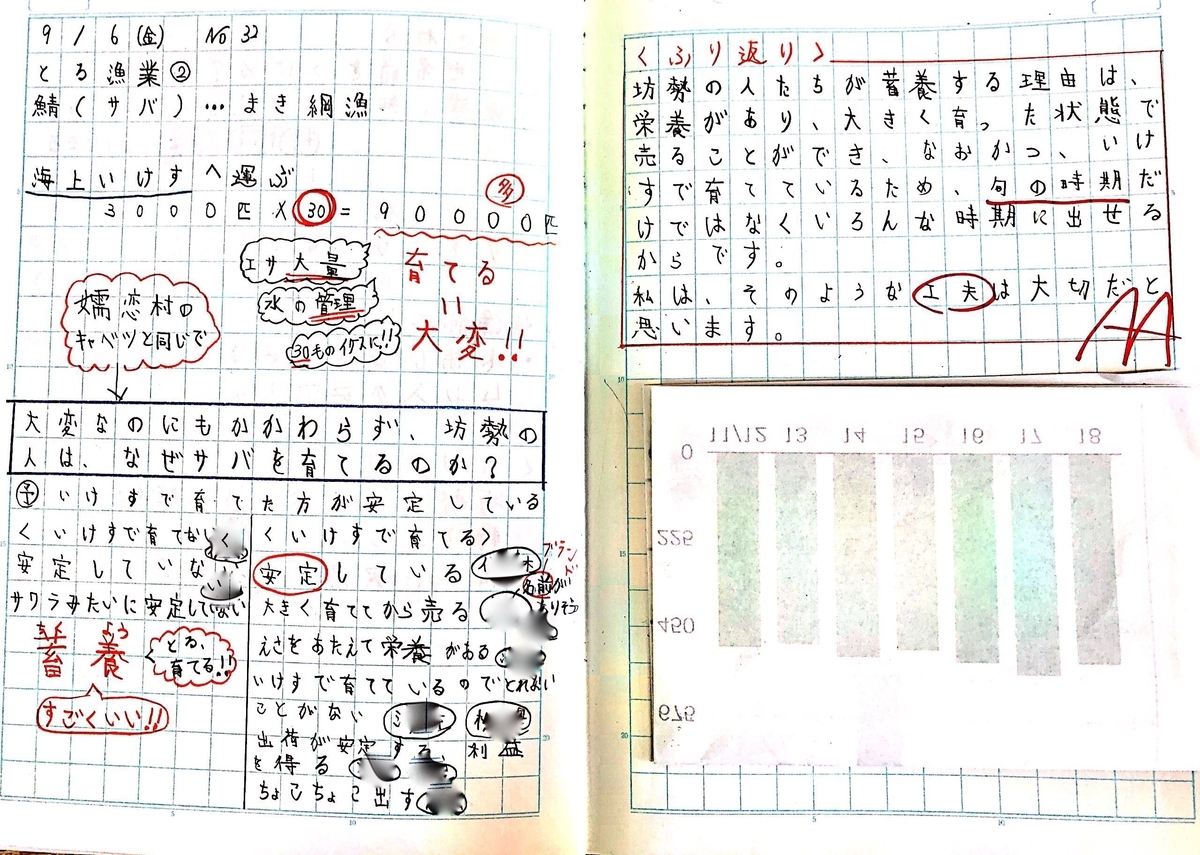 9/6(金) No 32
とる漁業②
鯖(サバ)…まき網漁.
海上いけすへ運ぶ
30000匹×30=900000匹
多
エサ大量
水の管理
30ものイケスに!!
育てる
=
大変!!
嬬恋村の
キャベツと同じで
大変なのにもかかわらず、坊勢の
人は、なぜサバを育てるのか?
予 いけすで育てた方が安定している
くいけすで育てない
安定していない
サクラみたいに安定してない
蓄養
ちくよう
とる、
育てる!!
すごくいい!!
くいけすで育てる>
安定している
ブランド
名前が
ありそう
大きく育ててから売る
えさをあたえて栄養がある
いけすで育てているのでとれない
ことがない
出荷が安定する、利益
を得る
ちょこちょこ出す
<ふり返り>
坊勢の人たちが蓄養する理由は、
栄養があり、大きく育った状態で
売ることができ、なおかつ、いけ
すで育てているため、旬の時期だ
けではなくいろんな時期に出せる
からです。
私は、そのような工夫は大切だと
思います。
11/12 13 14 15 16 17 18
0
225
450
675
5
10
15
20